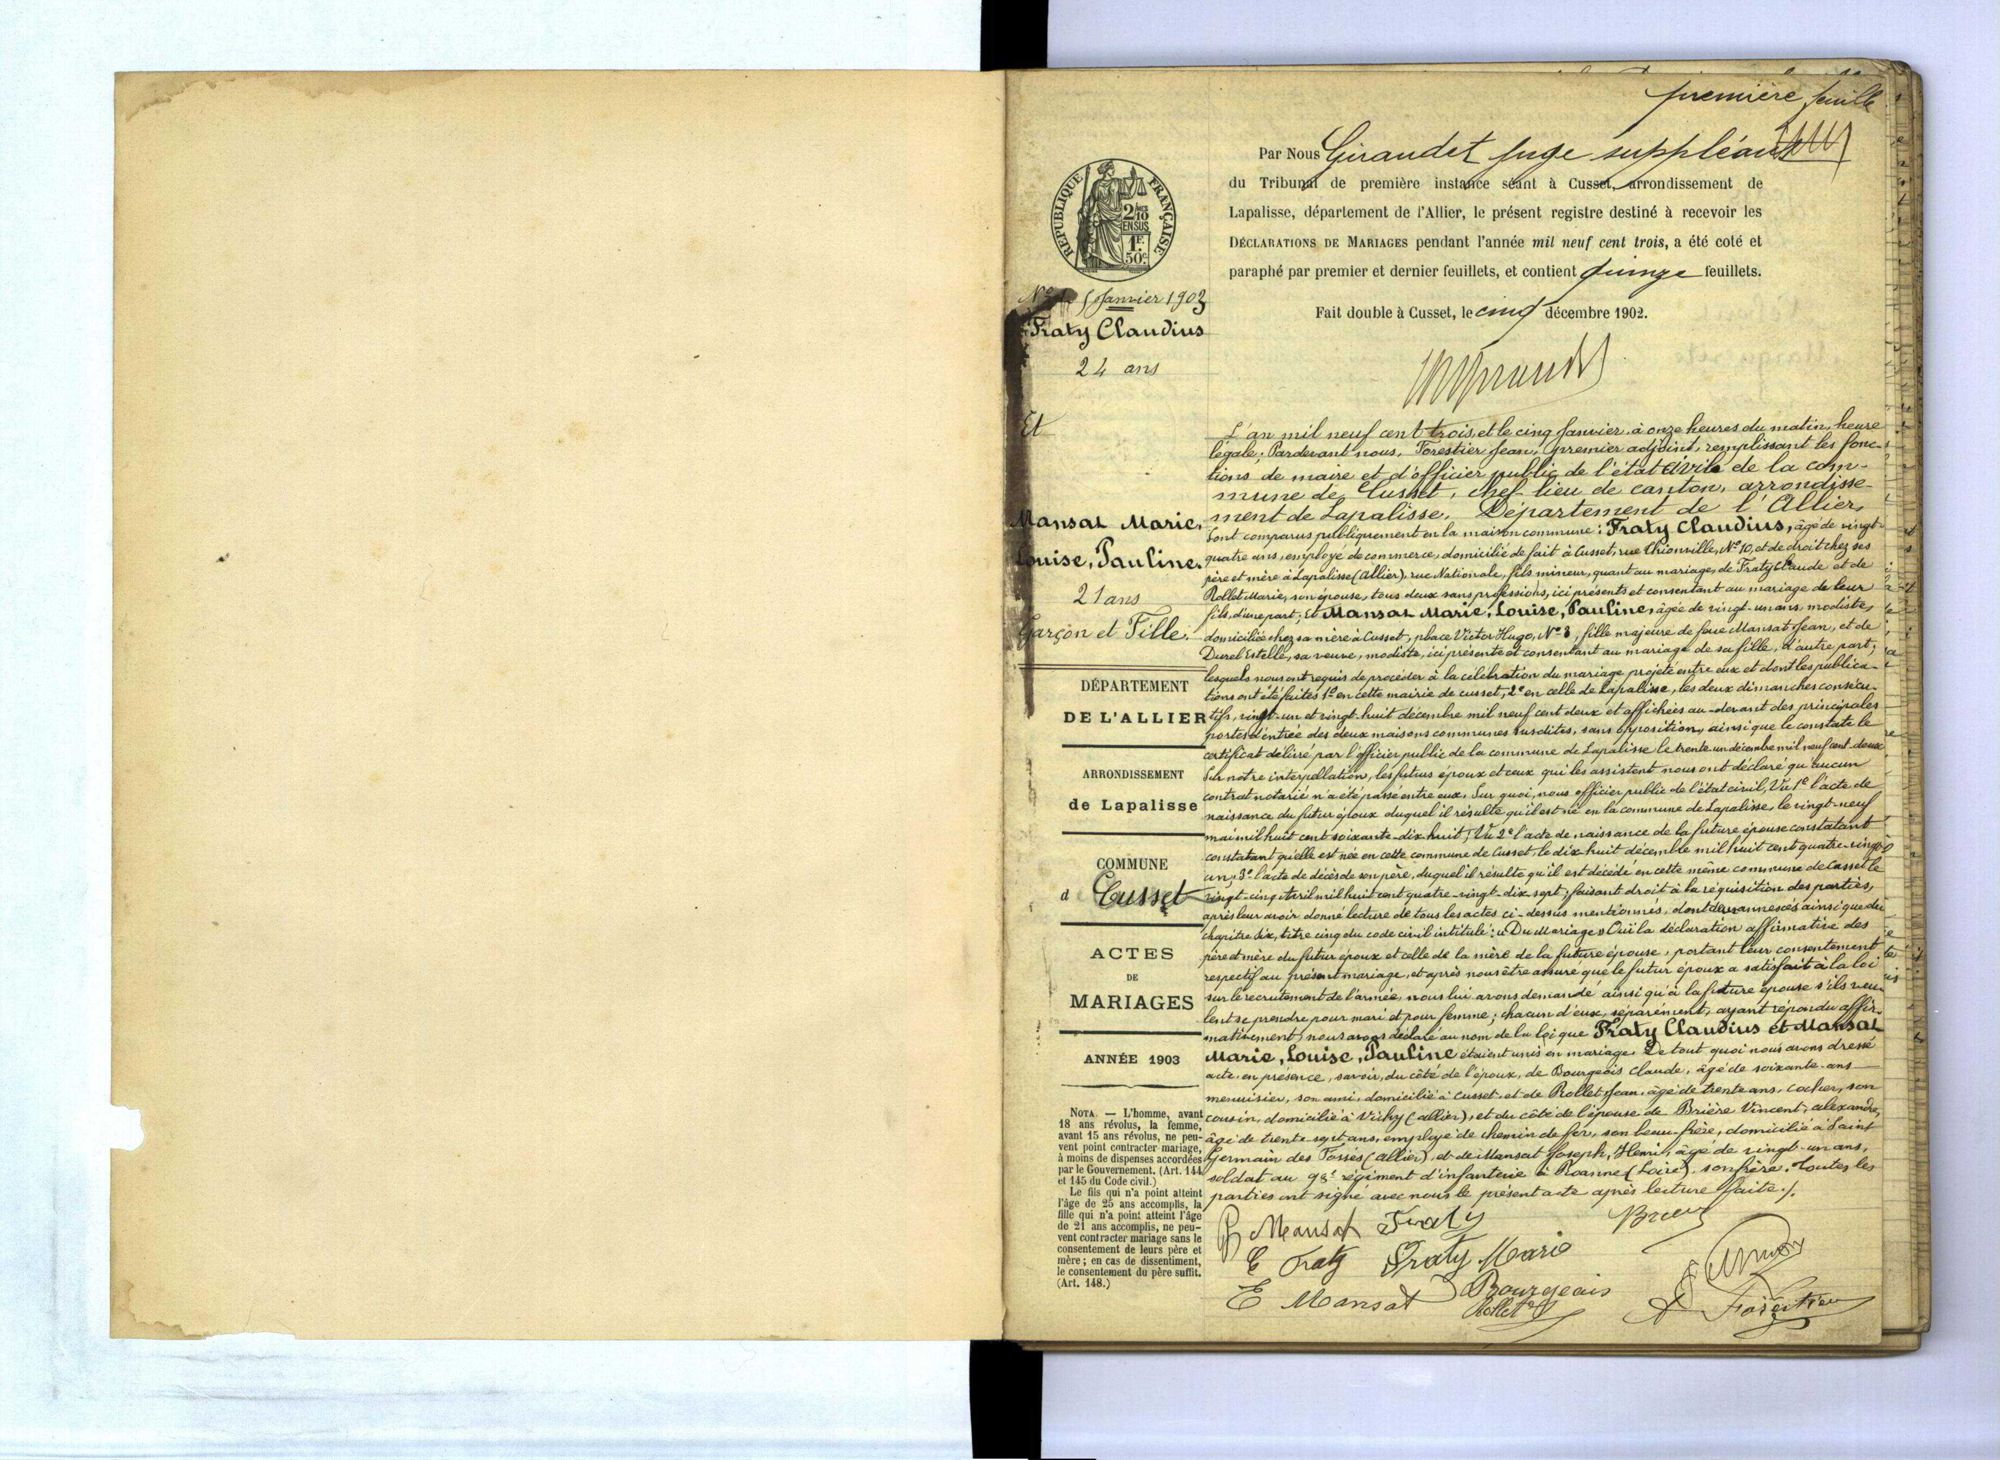 première feuille
Par Nous Giraudet juge suppléant
du Tribunal de première instance séant à Cusset, arrondissement de
Lapalisse, département de l'Allier, le présent registre destiné à recevoir les
DÉCLARATIONS DE MARIAGES pendant l'année mil neuf cent trois, a été coté et
paraphé par premier et dernier feuillets, et contient quinze feuillets.
Fait double à Cusset, le cinq décembre 1902.
RÉPUBLIQUE FRANÇAISE
2/10
EN SUS
1F.
50c.
5 Janvier 1903
Fraty Claudius
24 ans
Et
Mansat Marie,
Louise, Pauline.
21 ans
Garçon et Fille.
DÉPARTEMENT
DE L'ALLIER
ARRONDISSEMENT
de Lapalisse
COMMUNE
d Cusset
ACTES
DE
MARIAGES
ANNÉE 1903
NOTA. — L'homme, avant
18 ans révolus, la femme,
avant 15 ans révolus, ne peu-
vent point contracter mariage,
à moins de dispenses accordées
par le Gouvernement. (Art. 144
et 145 du Code civil.)
Le fils qui n'a point atteint
l'âge de 25 ans accomplis, la
fille qui n'a point atteint l'âge
de 21 ans accomplis, ne peu-
vent contracter mariage sans le
consentement de leurs père et
mère ; en cas de dissentiment,
le consentement du père suffit.
(Art. 148.)
L'an mil neuf cent trois, et le cinq Janvier, à onze heures du matin, heure
légale; Pardevant nous, Forestier Jean, premier adjoint, remplissant les fonc-
tions de maire et d'officier public de l'état civil de la com-
mune de Cusset, chef lieu de canton, arrondisse-
ment de Lapalisse, Département de l'Allier,
Sont comparus publiquement en la maison commune : Fraty Claudius, âgé de vingt-
quatre ans, employé de commerce, domicilié de fait à Cusset, rue Thionville, N° 10, et de droit chez ses
père et mère à Lapalisse (Allier), rue Nationale, fils mineur, quant au mariage, de Fraty Claude et de
Rollet Marie, son épouse, tous deux sans professions, ici présents et consentant au mariage de leur
fils, d'une part; Et Mansat Marie, Louise, Pauline, âgée de vingt-un ans, modiste,
domiciliée chez sa mère à Cusset, place Victor Hugo, N° 8, fille majeure de feue Mansat Jean, et de
Durel Estelle, sa veuve, modiste, ici présente et consentant au mariage de sa fille, d'autre part;
lesquels nous ont requis de procéder à la célébration du mariage projeté entre eux et dont les publica-
tions ont été faites 1° en cette mairie de Cusset, 2° en celle de Lapalisse, les deux dimanches consécu-
tifs, vingt-un et vingt-huit décembre mil neuf cent deux et affichées au-devant des principales
portes d'entrée des deux maisons communes susdites, sans opposition, ainsi que le constate le
certificat délivré par l'officier public de la commune de Lapalisse le trente un décembre mil neuf cent deux
Sur notre interpellation, les futurs époux et ceux qui les assistent nous ont déclaré qu'aucun
contrat notarié n'a été passé entre eux. Sur quoi, nous officier public de l'état civil, Vu 1° l'acte de
naissance du futur époux duquel il résulte qu'il est né en la commune de Lapalisse, le vingt-neuf
mai mil huit cent soixante-dix huit; Vu 2° l'acte de naissance de la future épouse constatant
constatant qu'elle est née en cette commune de Cusset, le dix-huit décembre mil huit cent quatre-vingt-
un; 3° l'acte de décès de son père, duquel il résulte qu'il est décédé en cette même commune de Cusset le
vingt-cinq Avril mil huit cent quatre-vingt-dix sept; faisant droit à la réquisition des parties,
après leur avoir donné lecture de tous les actes ci-dessus mentionnés, dont deux annexés ainsi que du
chapitre six, titre cinq du code civil intitulé : « Du Mariage » Ouï la déclaration affirmative des
père et mère du futur époux et celle de la mère de la future épouse, portant leur consentement
respectif au présent mariage, et après nous être assuré que le futur époux a satisfait à la loi
sur le recrutement de l'armée, nous lui avons demandé ainsi qu'à la future épouse s'ils veu-
lent se prendre pour mari et pour femme; chacun d'eux, séparément, ayant répondu affir-
mativement, nous avons déclaré au nom de la loi que Fraty Claudius et Mansat
Marie, Louise, Pauline étaient unis en mariage. De tout quoi nous avons dressé
acte, en présence, savoir, du côté de l'époux, de Bourgeois Claude, âgé de soixante-ans
menuisier, son ami, domicilié à Cusset, et de Rollet Jean, âgé de trente ans, cocher, son
cousin, domicilié à Vichy (Allier), et du côté de l'épouse de Brière Vincent, alexandre,
âgé de trente sept ans, employé de chemin de fer, son beau-frère, domicilié à Saint
Germain des Fossés (Allier), et de Mansat Joseph, Henri, âgé de vingt-un ans,
soldat au 98e régiment d'infanterie à Roanne (Loire), son frère. Toutes les
parties ont signé avec nous le présent acte après lecture faite./.
P Mansat Fraty
C Fraty Fraty Marie
E Mansat Bourgeois
Rollet
Forestier